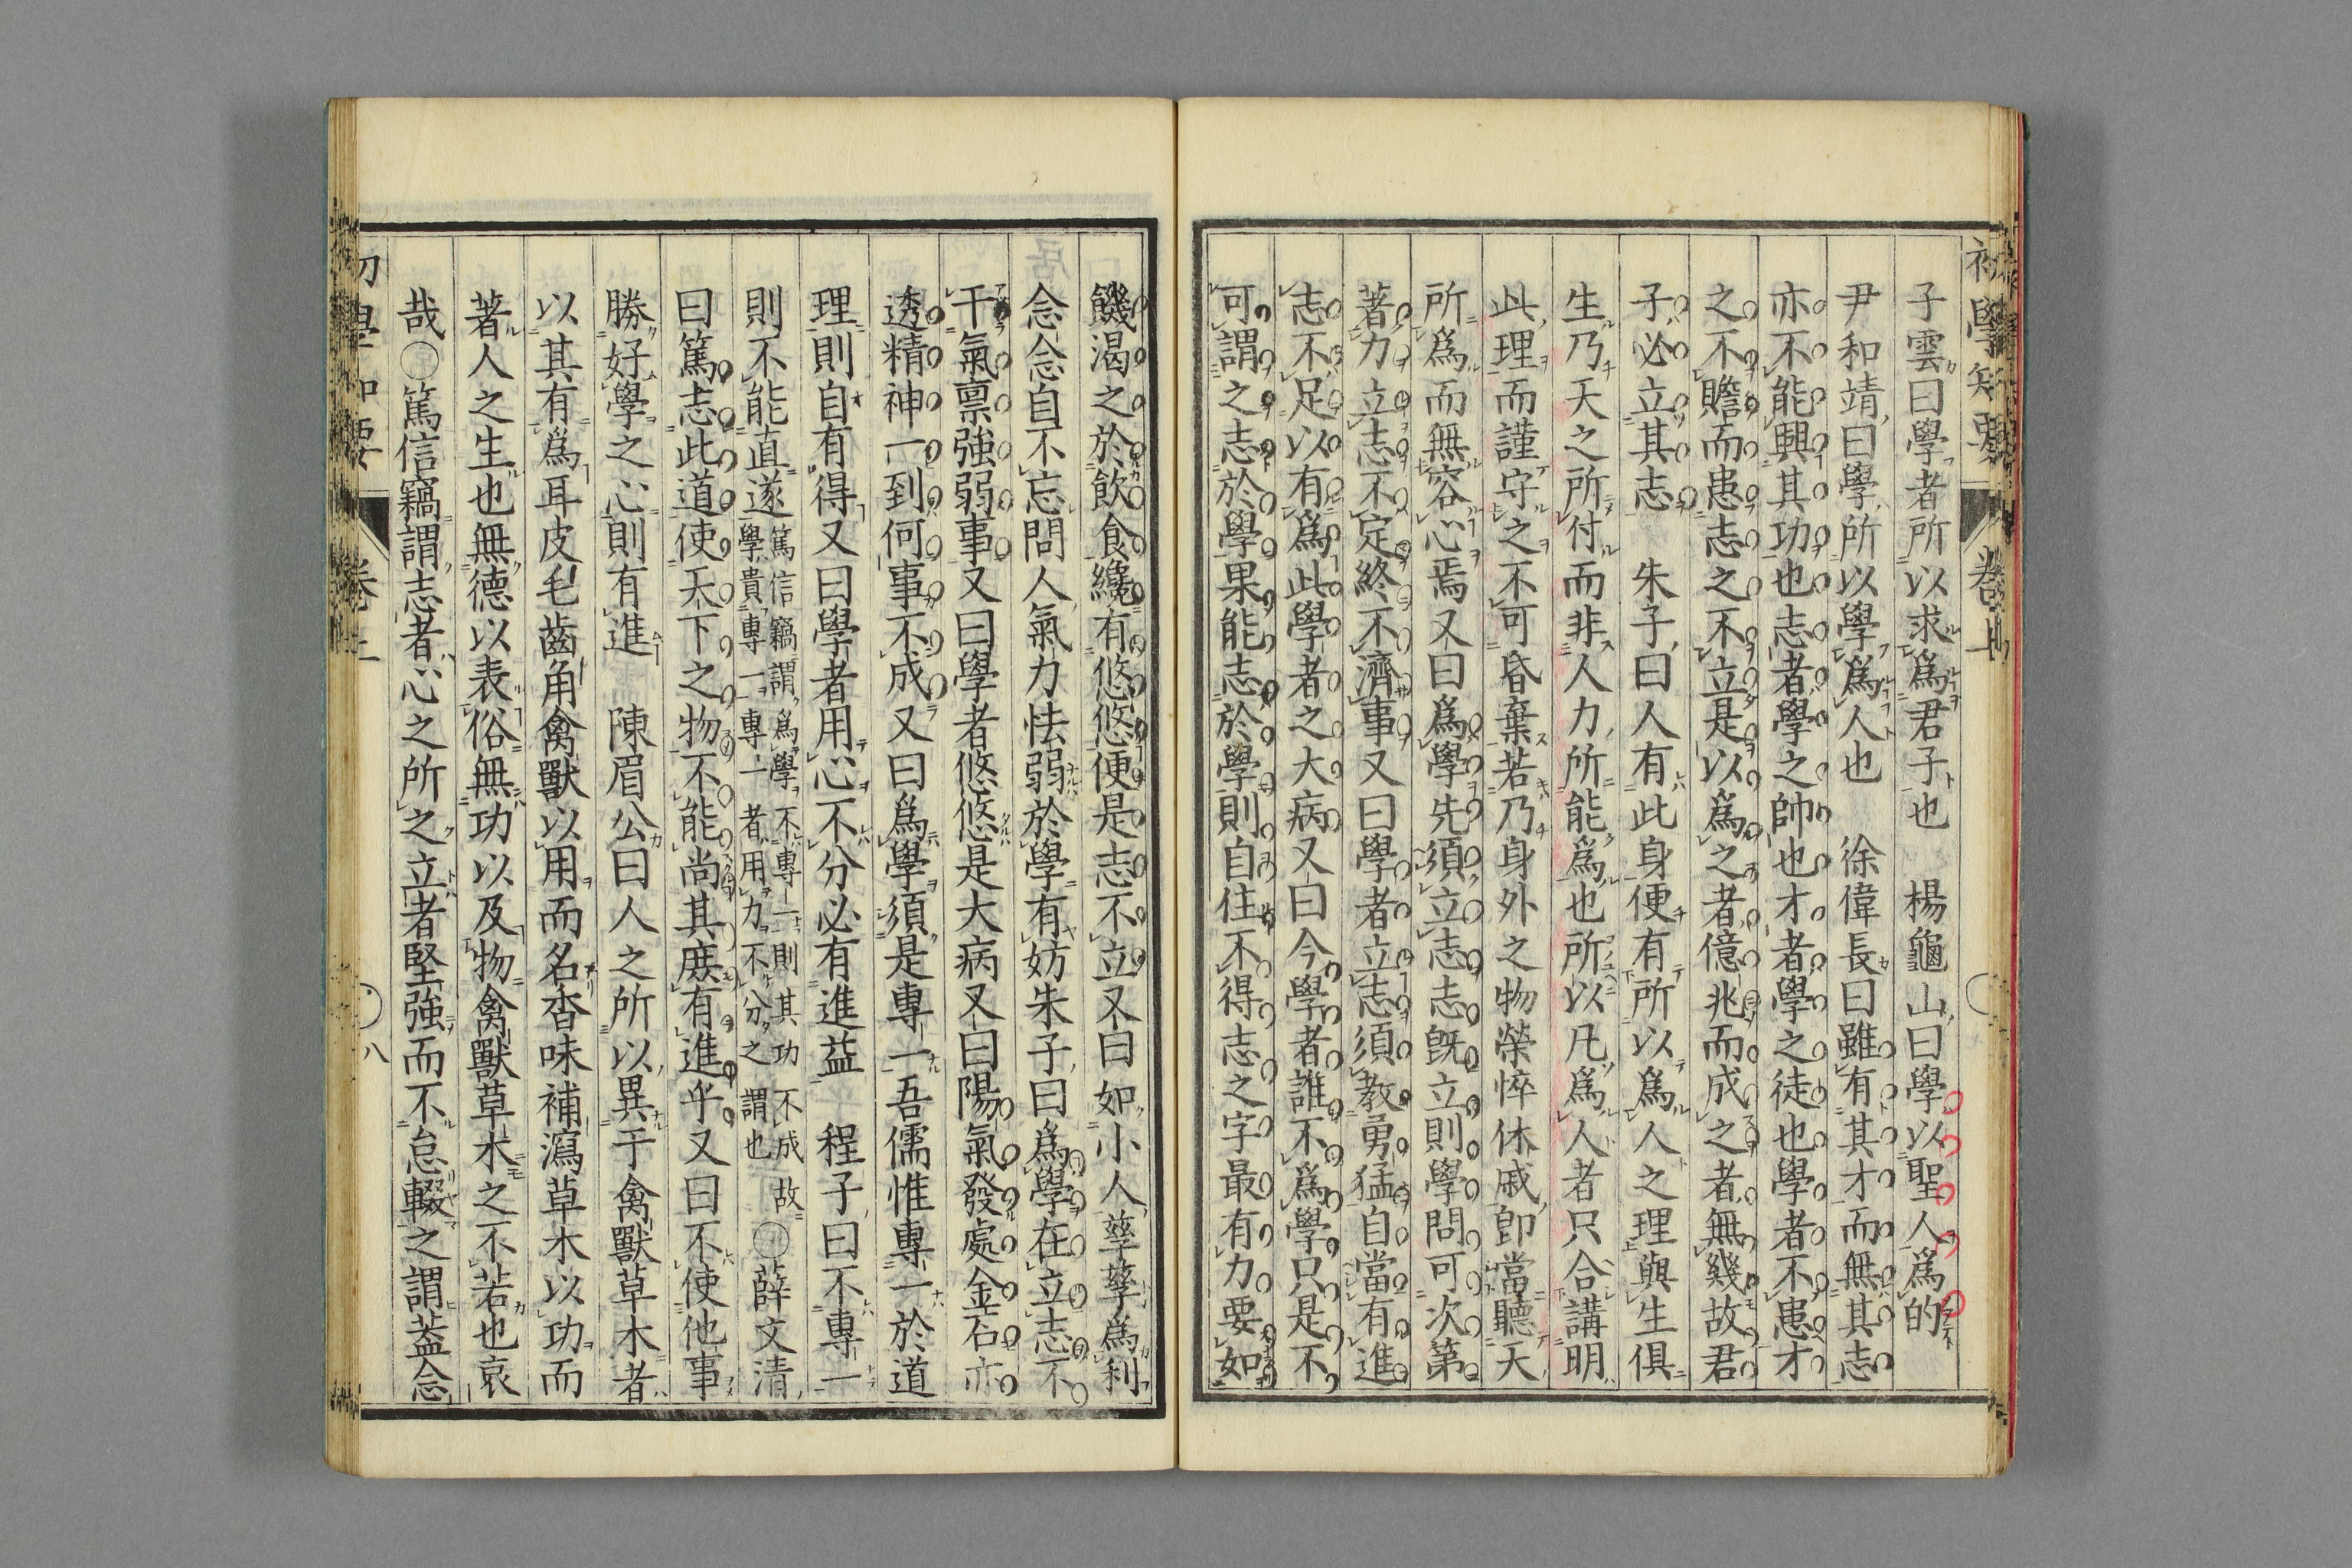 子雲曰學者所以求爲君子也　楊龜山曰學以聖人爲的
尹和靖曰學所以學爲人也　徐偉長曰雖有其才而無其志
亦不能興其功也志者學之帥也才者學之徒也學者不患才
之不贍而患志之不立是以爲之者億兆而成之者無幾故君
子必立其志　朱子曰人有此身便有所以爲人之理與生俱
生乃天之所付而非人力所能爲也所以凡爲人者只合講明
此理而謹守之不可昏棄若乃身外之物榮悴休戚卽當聽天
所爲而無容心焉又曰爲學先須立志志旣立則學問可次第
著力立志不定終不濟事又曰學者立志須教勇猛自當有進
志不足以有爲此學者之大病又曰今學者誰不爲學只是不
可謂之志於學果能志於學則自住不得志之字最有力要如
饑渴之於飲食纔有悠悠便是志不立又曰如小人孳孳爲利
念念自不忘問人氣力怯弱於學有妨朱子曰爲學在立志不
干氣稟強弱事又曰學者悠悠是大病又曰陽氣發處金石亦
透精神一到何事不成又曰爲學須是專一吾儒惟專一於道
理則自有得又曰學者用心不分必有進益　程子曰不專一
則不能直遂篤信竊謂爲學不專一則其功不成故
學貴專一專一者用力不分之謂也〇薛文清
曰篤志此道使天下之物不能尚其庶有進乎又曰不使他事
勝好學之心則有進　陳眉公曰人之所以異于禽獸草木者
以其有爲耳皮毛齒角禽獸以用而名香味補瀉草木以功而
著人之生也無德以表俗無功以及物禽獸草木之不若也哀
哉〇篤信竊謂志者心之所之立者堅強而不怠輟之謂蓋念
初學知要
卷上
八